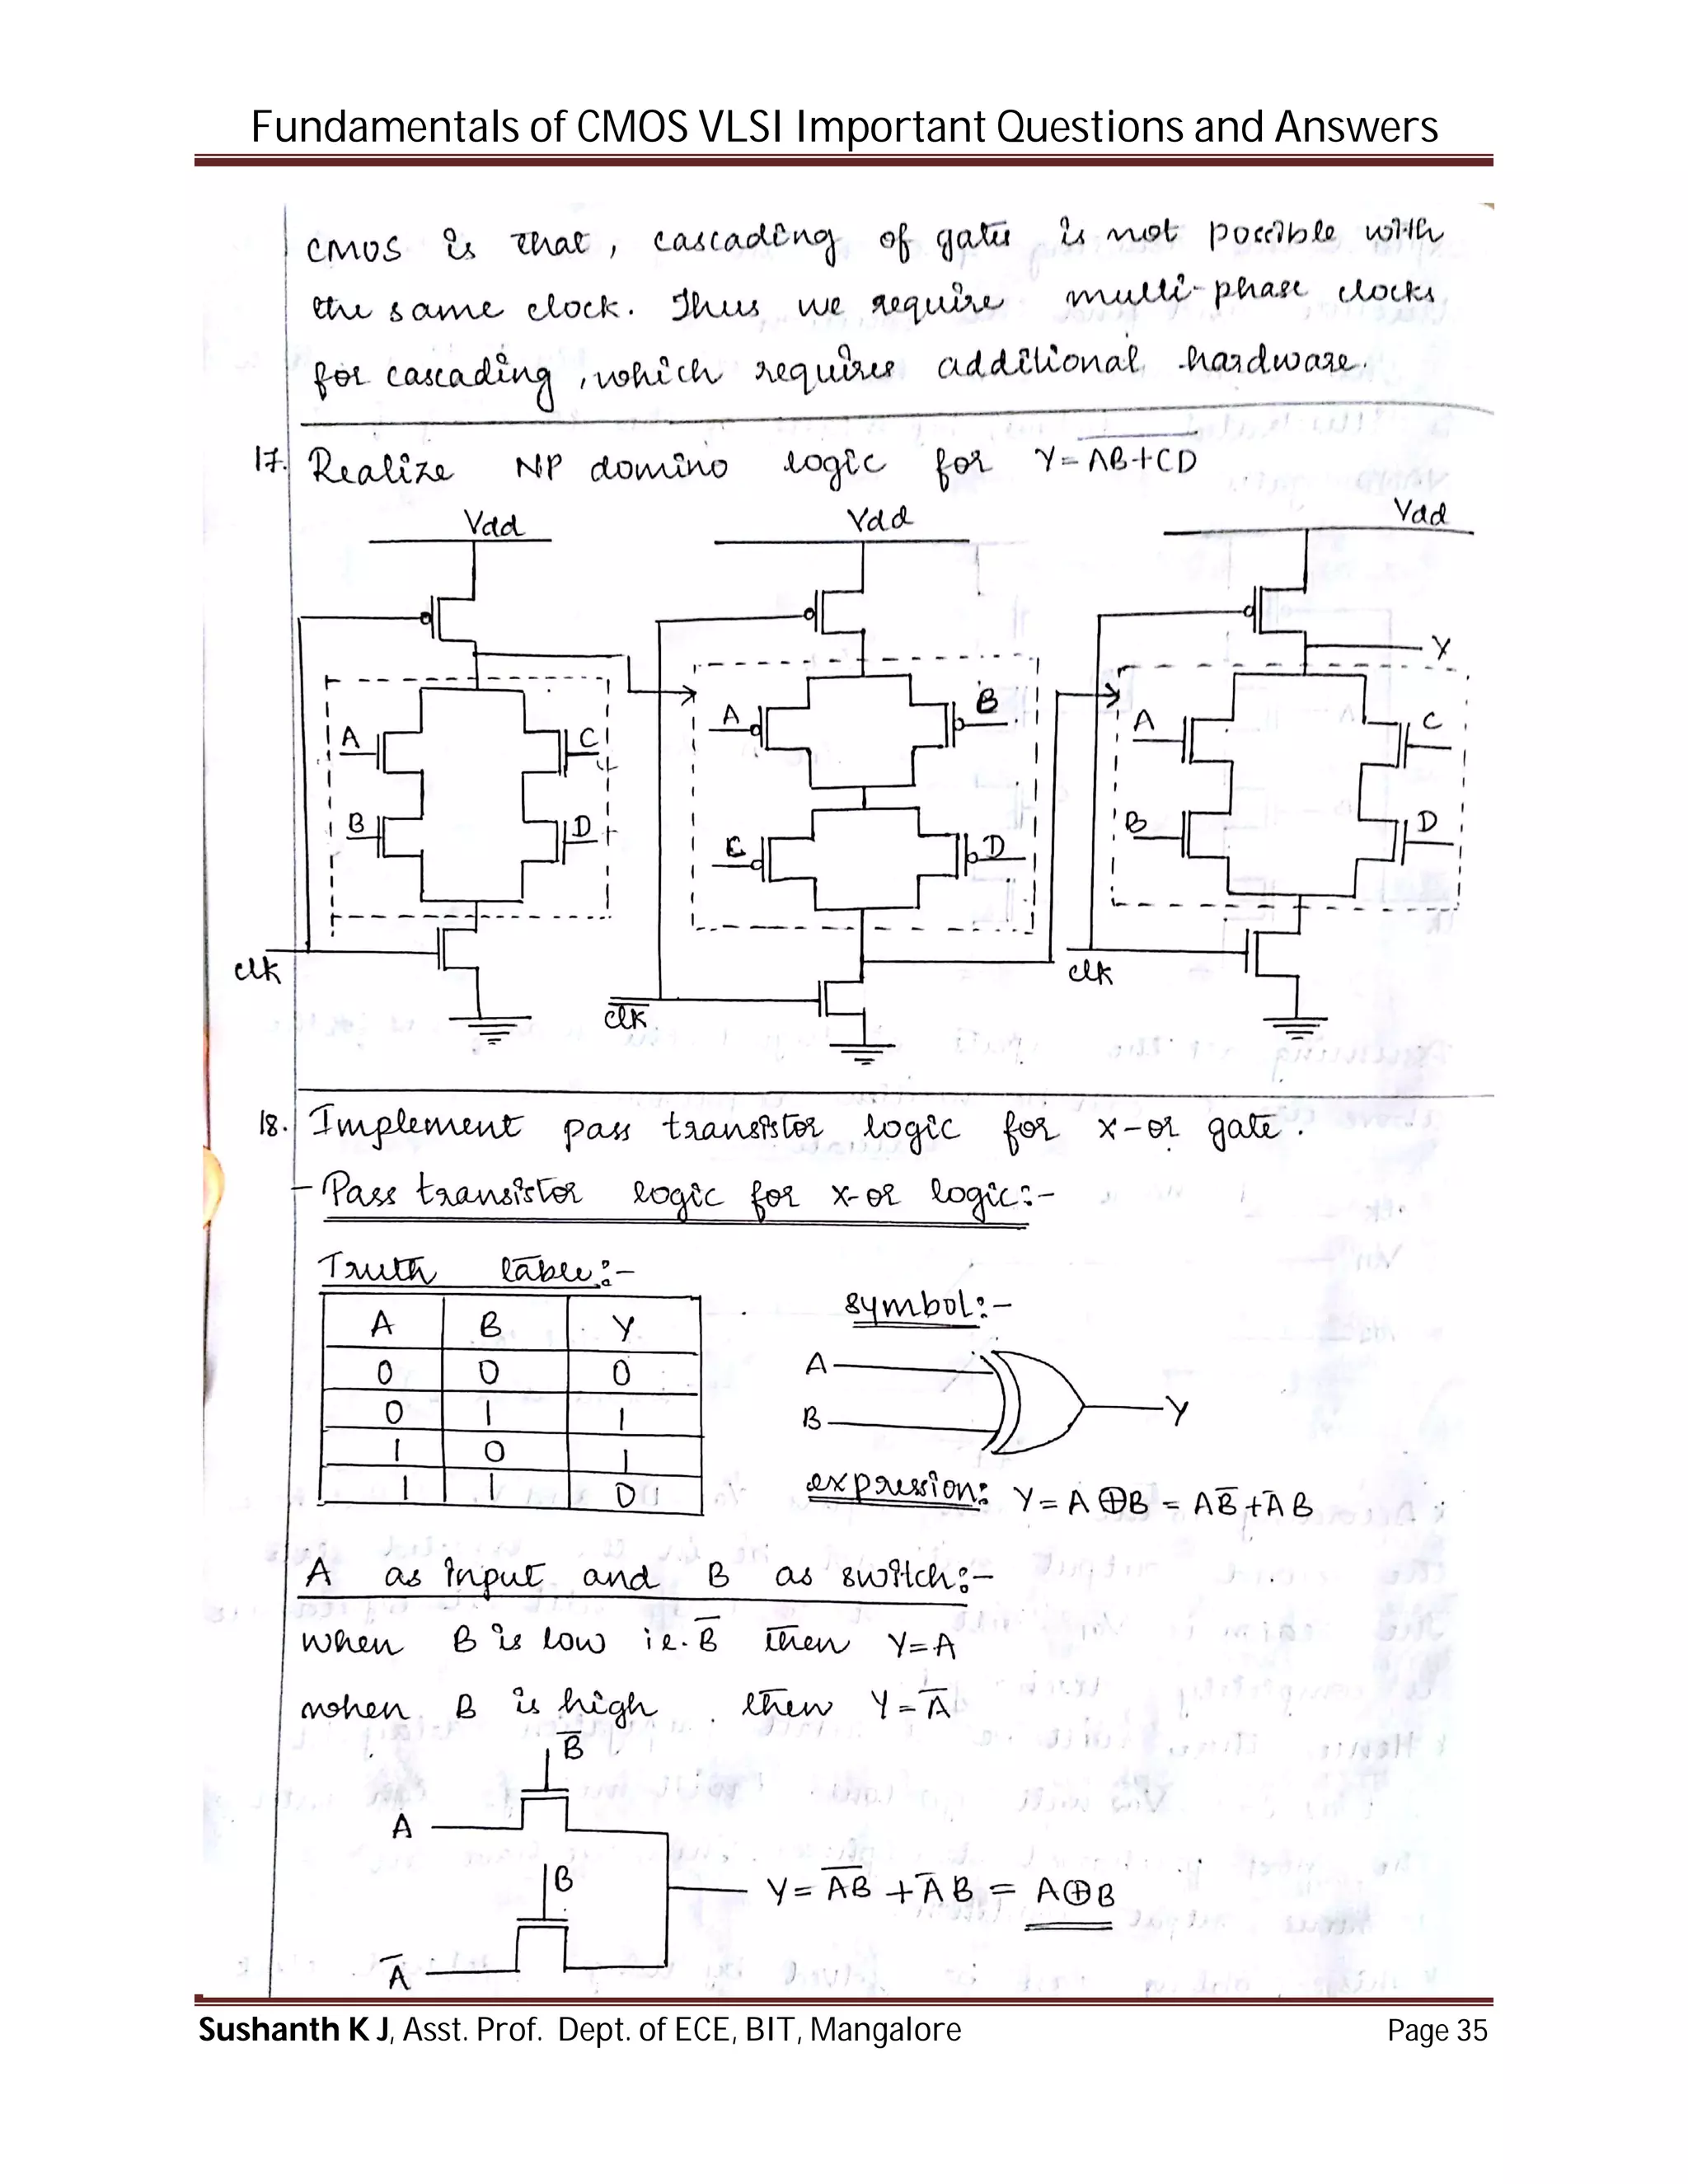 Fundamentals of CMOS VLSI Important Questions and Answers
CMOS is that, cascading of gates is not possible with
the same clock. Thus we require multi-phase clocks
for cascading, which requires additional hardware.
17. Realize NP domino logic for Y = \overline{AB+CD}
Vdd Vdd Vdd
Y
A C A B A C
B D C D B D
clk \overline{clk} clk
18. Implement pass transistor logic for x-or gate.
- Pass transistor logic for x-or logic:-
Truth table:-
A B Y
0 0 0
0 1 1
1 0 1
1 1 0
symbol:-
A
B
Y
expression: Y = A ⊕ B = AB̅ + A̅B
A as input and B as switch:-
when B is low i.e. B̅ then Y = A
when B is high then Y = A̅
B̅
A
B
Y = \overline{AB} + A̅B = A⊕B
A̅
Sushanth K J, Asst. Prof. Dept. of ECE, BIT, Mangalore Page 35